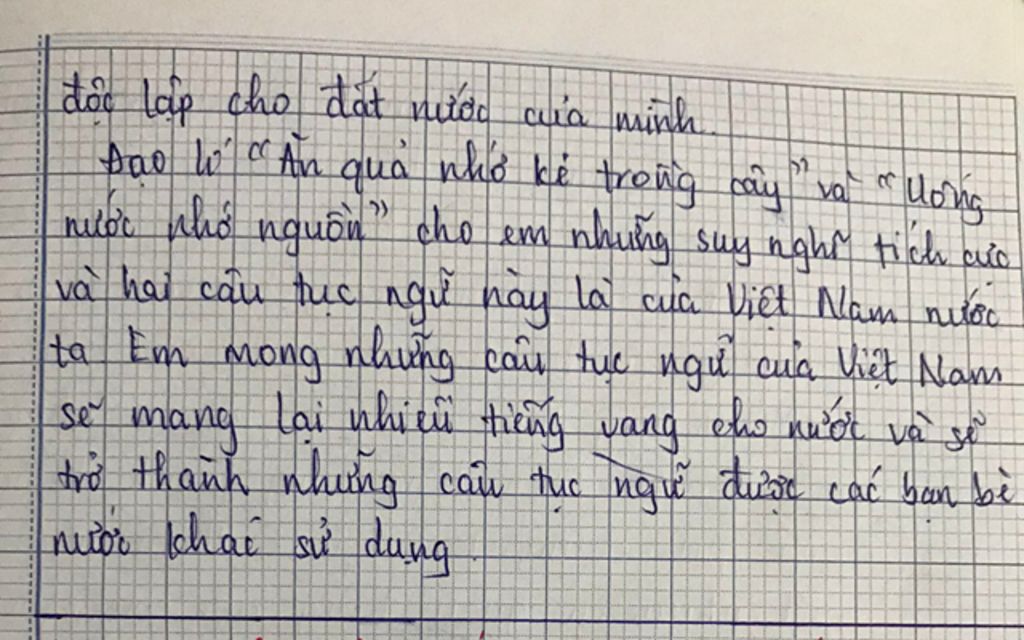 độc lập cho đất nước của mình.
Đạo lí "Ăn quả nhớ kẻ trồng cây" và "Uống
nước nhớ nguồn" cho em những suy nghĩ tích cực
và hai câu tục ngữ này là của Việt Nam nước
ta Em mong những câu tục ngữ của Việt Nam
sẽ mang lại nhiều tiếng vang cho nước và sẽ
trở thành những câu tục ngữ được các bạn bè
nước khác sử dụng.